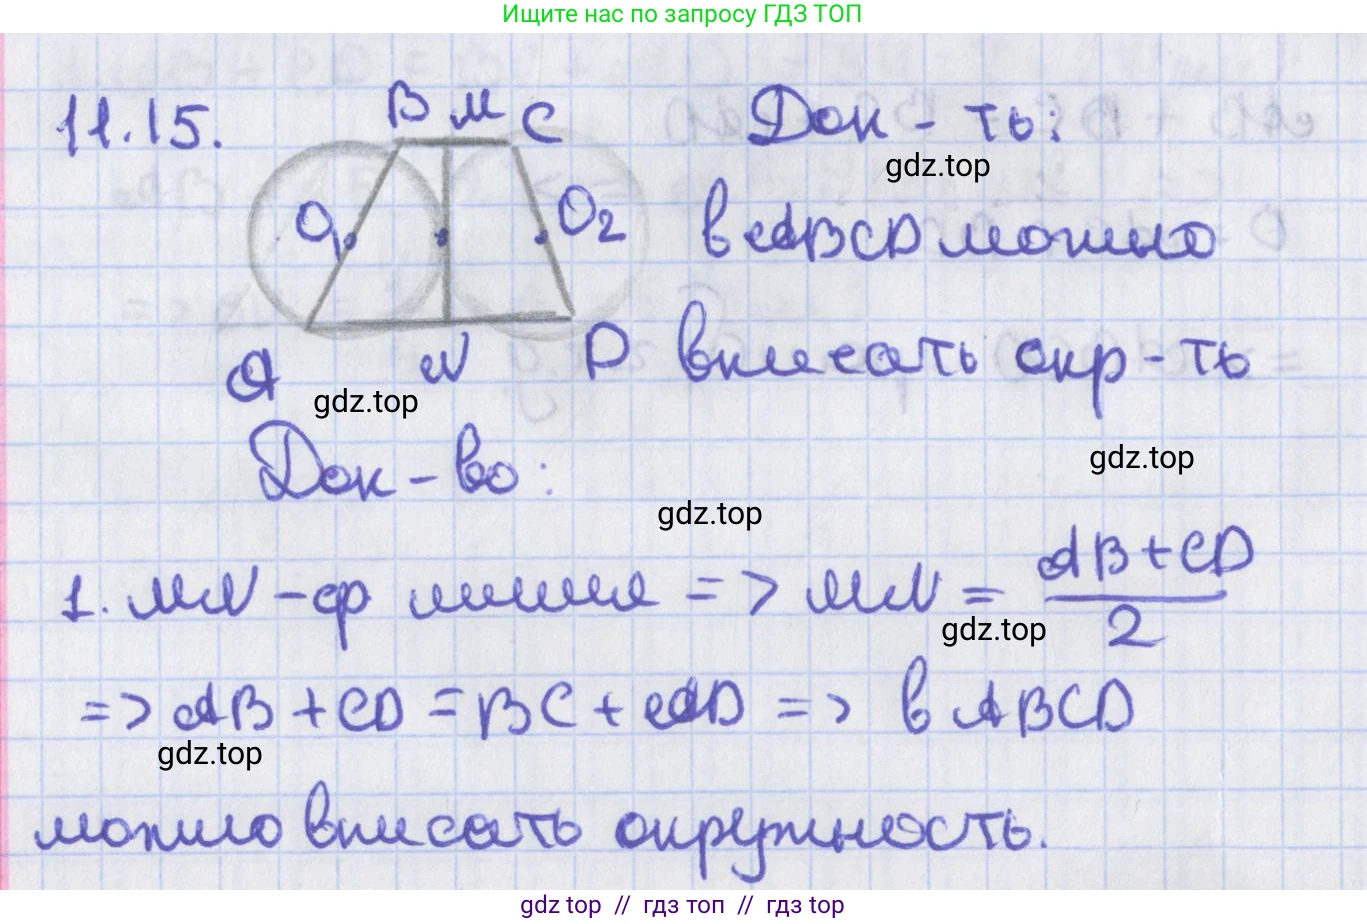 Ищите нас по запросу ГДЗ ТОП
11.15.
B M C
Док-ть:
gdz.top
O₁
O₂
в ABCD можно
A N D
вписать окр-ть
gdz.top
Док-во:
gdz.top
gdz.top
1. MN - ср линия => MN = (AB+CD)/2
gdz.top
=> AB + CD = BC + AD => в ABCD
gdz.top
можно вписать окружность.
gdz top // гдз топ // гдз top